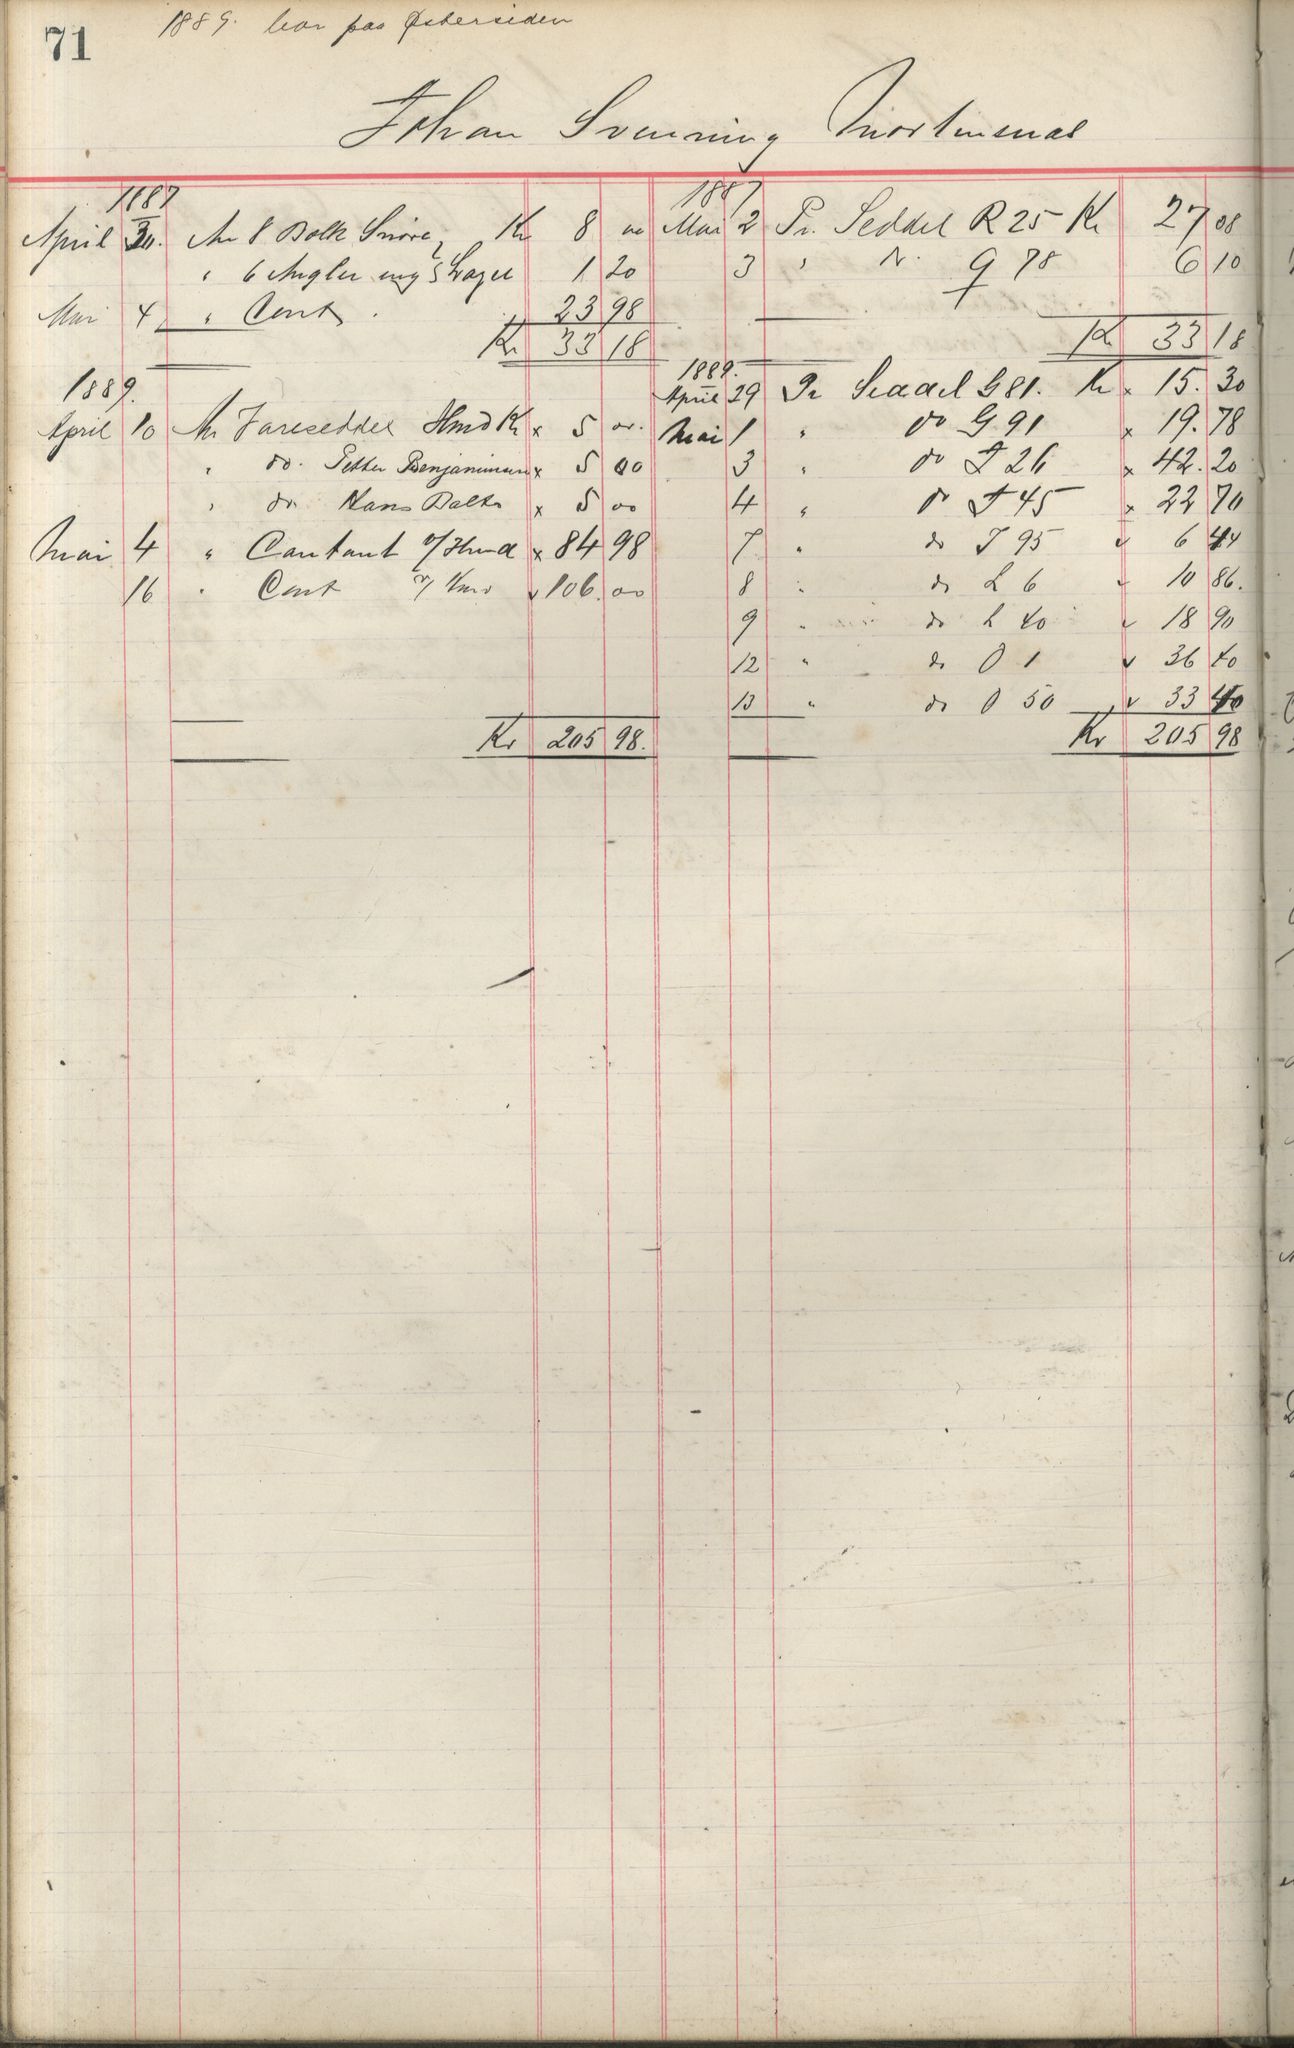 1889. bor paa Østersiden
71
Johan Svenning Mortensnæs
1887
April 30. An 8 Bolk Snøre Kr 8 00
" 6 Angler
1 20
Mai 4 " Cont 23 98
Kr 33 18
1889.
April 10 An Fareseddel Hmd Kr x 5 00.
" do. Petter Benjaminsen x 5 00
" do Hans Balto x 5 00
Mai 4 " Contant v/ Hmd x 84 98
16 " Cont v/ Hmd v 106.00
Kr 205 98.
1887
Mai 2 Pr. Seddel R 25 Kr 27 08
3 " " 78 6 10
Kr 33 18
1889.
April 29 Pr Seddel G 81. Kr x 15. 30
Mai 1 " do G 91 x 19. 78
3 " do I 26 x 42. 20
4 " do I 45 x 22 70
7 " do I 95 v 6 44
8 " do L 6 v 10 86.
9 " do L 40 v 18 90
12 " do O 1 v 36 40
13 " do O 50 v 33 40
Kr 205 98